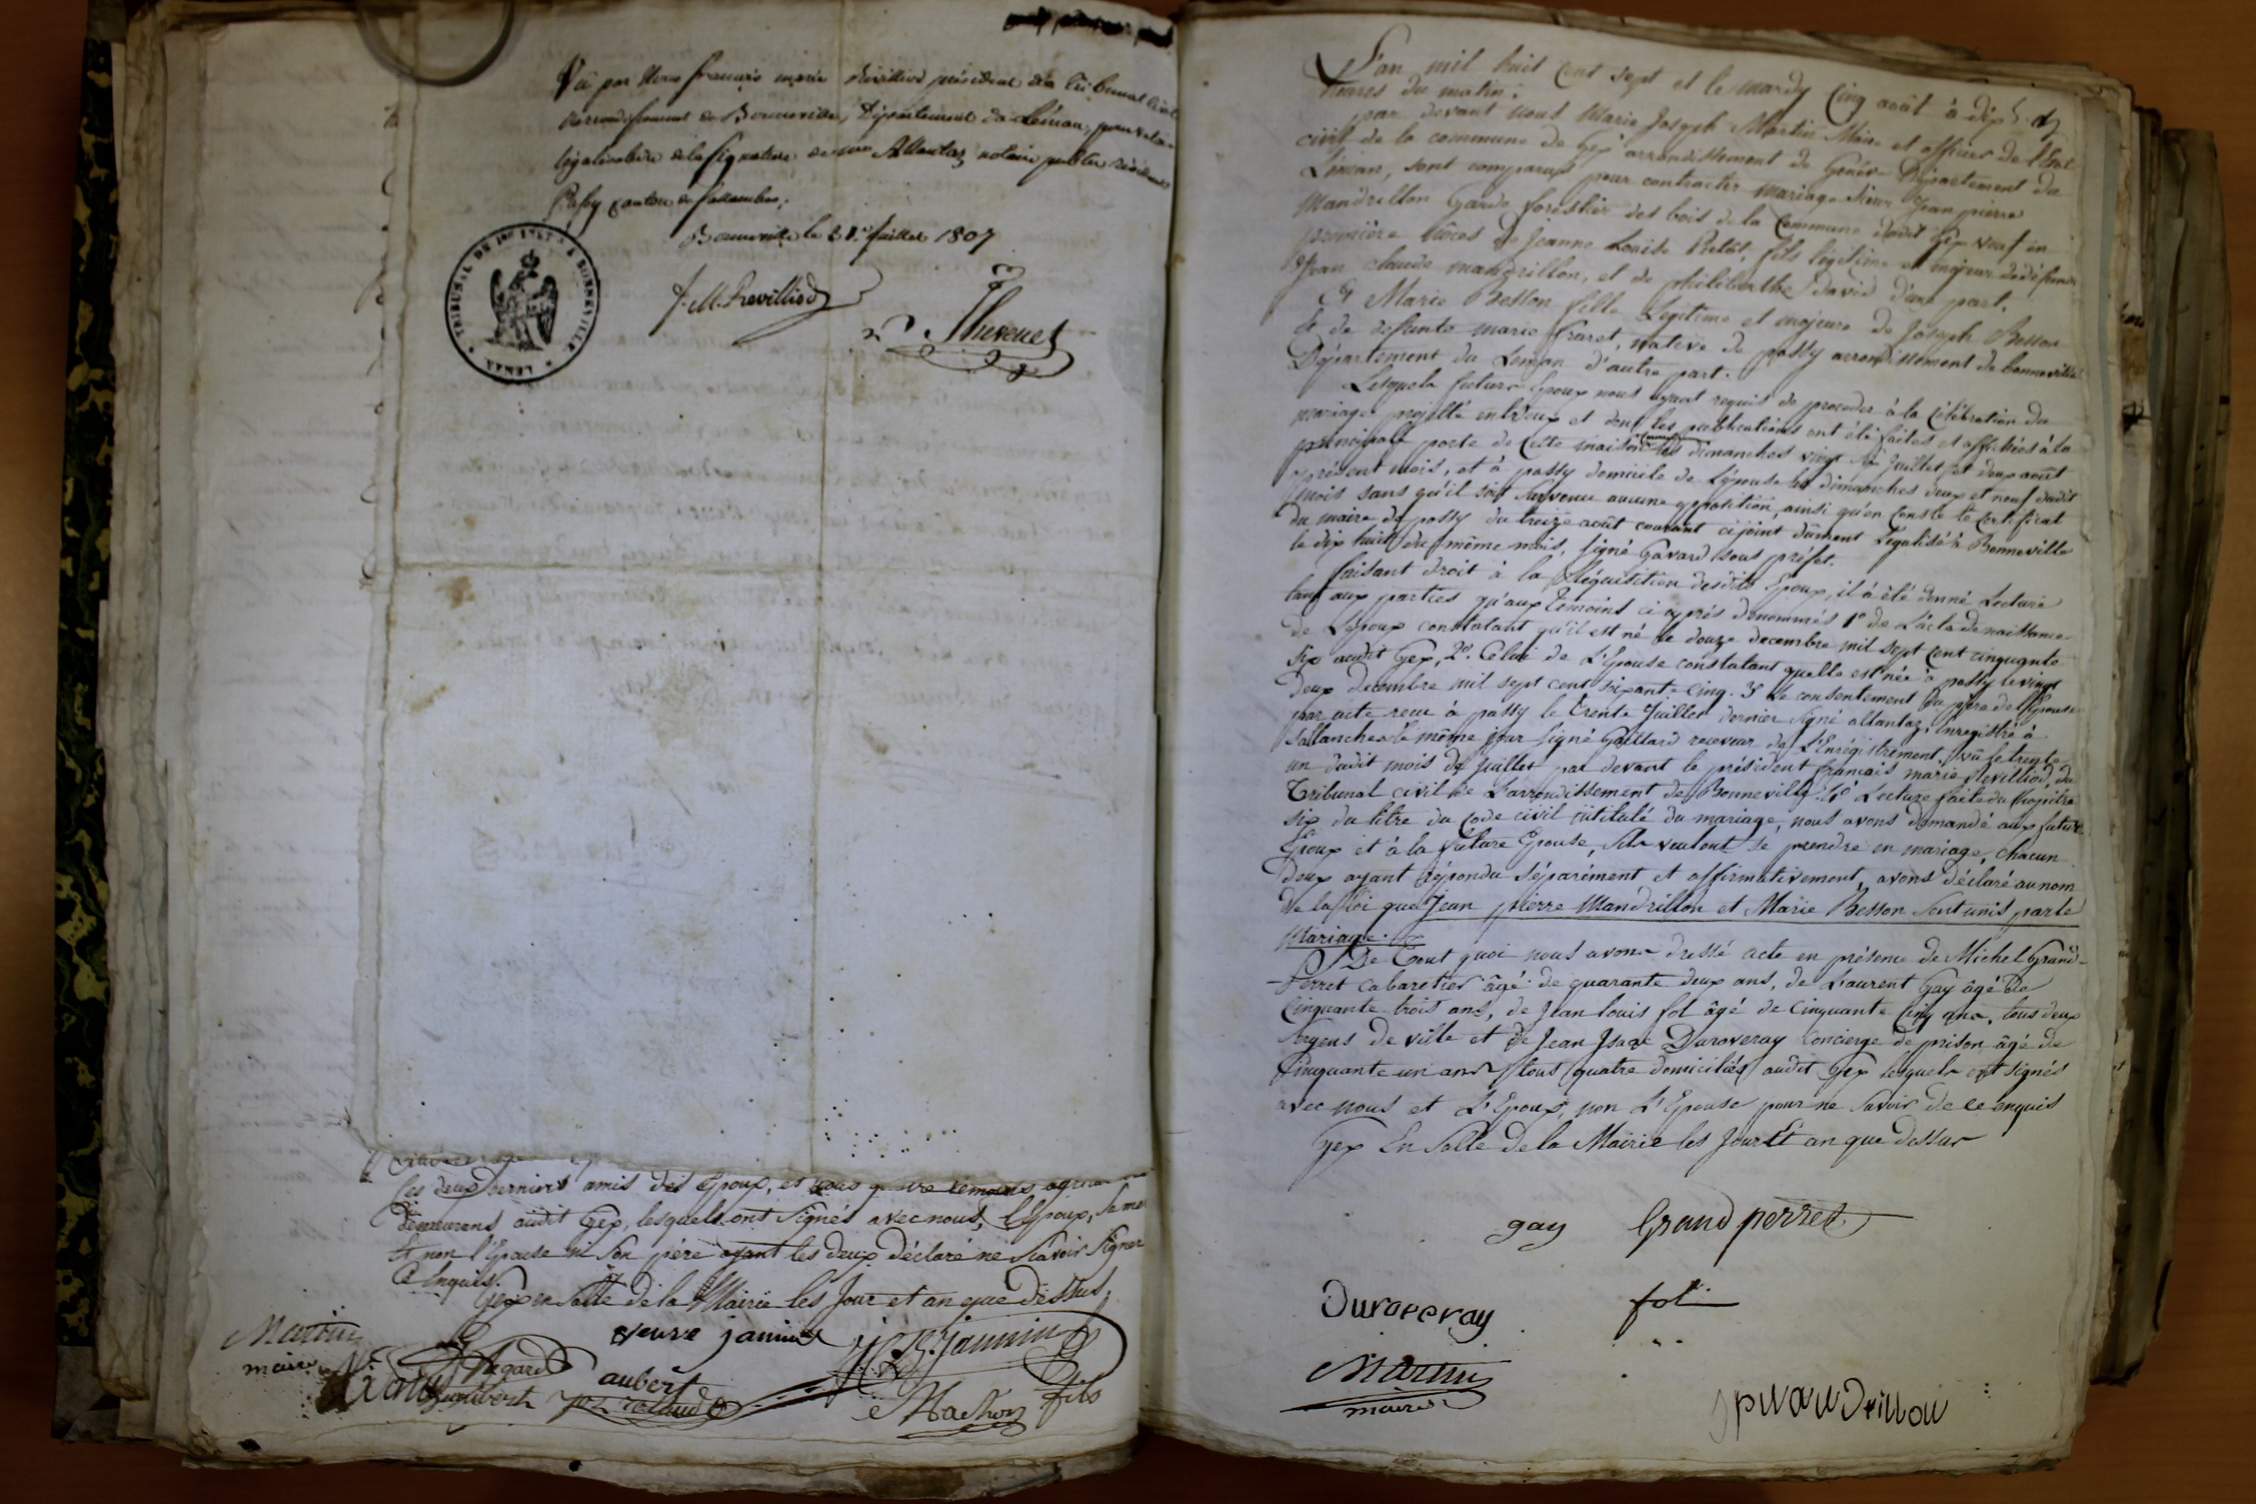 Vû par Nous françois marie Revilliod président du Tribunal Civil
arrondissement de Bonneville, Département du Léman, pour valoir
légalisation de la signature de me Allantaz notaire public résidant
Passy canton de Sallanches.
Bonneville le 31 Juillet 1807
TRIBUNAL DE 1re INST. A BONNEVILLE
LEMAN
F. M. Revilliod
Thevenet
Les deux derniers amis des Epoux, et tous quatre témoins
demeurans audit Gex, lesquels ont signés avec nous, l'Epoux,
Et non l'Epouse ni son père ayant les deux déclaré ne Scavoir signer
Enquis.
Gex en Salle de la Mairie les Jour et an que dessus.
Martin
maire
veuve jannin
jannin
fils
aubert
Machon
L'an mil huit Cent sept et le mardy Cinq août à dix
heures du matin.
par devant nous Marie Joseph Martin Maire et officier de l'Etat
civil de la commune de Gex arrondissement de Genève Département du
Léman, sont comparus pour contracter mariage Sieur Jean pierre
Mandrillon Garde forestier des bois de la Commune dudit Gex veuf en
première nôces de Jeanne Louise fils légitime et majeur de défunt
Jean claude mandrillon, et de philiberthe David d'une part.
Et Marie Besson fille Légitime et majeure de Joseph Besson
et de defunte marie fraret, native de passy arrondissement de bonneville
Département du Leman d'autre part.
Lesquels futurs Epoux nous ayant requis de proceder à la Célébration du
mariage projetté entr'eux et dont les publications ont été faites et affichées à la
principale porte de Cette maison Comune les dimanches vingt six Juillet et deux août
présent mois, et à passy domicile de L'épouse les dimanches deux et neuf dudit
mois sans qu'il soit survenu aucune opposition, ainsi qu'en Conste le Certificat
du maire de passy du treize août courant ci joint dûment Légalisé à Bonneville
le dix huit du même mois, signé Gavard sous préfet.
faisant droit à la Réquisition desdits Epoux, il à été donné Lecture
tant aux parties qu'aux témoins ci après dénommés 1º de L'acte de naissance
de L'époux constatant qu'il est né le douze decembre mil sept Cent cinquante
six audit Gex, 2º. Celui de L'Epouse constatant quelle est née à passy le vingt
deux decembre mil sept cent soixante cinq. 3º le consentement du père de l'Epouse
par acte reçu à passy le trente Juillet dernier signé allantaz, Enregistré à
Sallanches le même jour signé Gaillard receveur de L'Enregistrement, vû le trente
un dudit mois de Juillet par devant le président françois marie Revilliod, du
Tribunal civil de L'arrondissement de Bonneville. 4º Lecture faite du Chapitre
six du titre du Code civil intitulé du mariage, nous avons demandé aux futur
Epoux et à la future Epouse, s'ils veulent se prendre en mariage, chacun
deux ayant répondu séparément et affirmativement, avons déclaré au nom
de la Loi que Jean pierre Mandrillon et Marie Besson sont unis par le
Mariage.
De Tout quoi nous avons dressé acte en présence de Michel Grand-
Perret cabaretier âgé de quarante deux ans, de Laurent Gay âgé de
Cinquante trois ans, de Jean louis fol âgé de Cinquante Cinq ans, tous deux
Sergens de ville et de Jean Isaac Duroveray Concierge de prison âgé de
Cinquante un ans tous quatre domiciliés audit Gex lesquels ont signés
avec nous et L'Epoux, non L'Epouse pour ne savoir de ce enquis
Gex En Salle de la Mairie les Jour Et an que dessus
gay Grand perret
Duroveray fol
Martin
maire
jp mandrillon